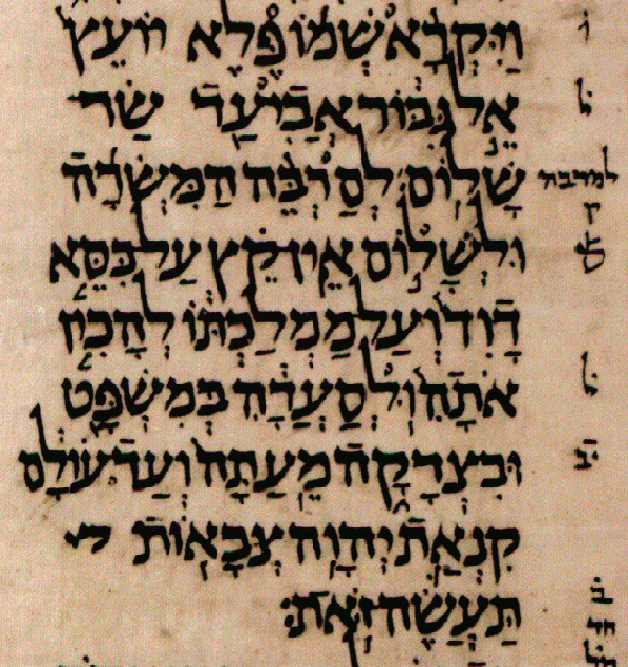 וַיִּקְרָא שְׁמוֹ פֶּלֶא יוֹעֵץ
אֵל גִּבּוֹר אֲבִי עַד שַׂר
שָׁלוֹם׃ לְםַרְבֵּה הַמִּשְׂרָה למרבה
וּלְשָׁלוֹם אֵין קֵץ עַל כִּסֵּא ק
דָּוִד וְעַל מַמְלַכְתּוֹ לְהָכִין
אֹתָהּ וּלְסַעֲדָהּ בְּמִשְׁפָּט ל
וּבִצְדָקָה מֵעַתָּה וְעַד עוֹלָם יב
קִנְאַת יְהוָה צְבָאוֹת
תַּעֲשֶׂה זֹּאת׃